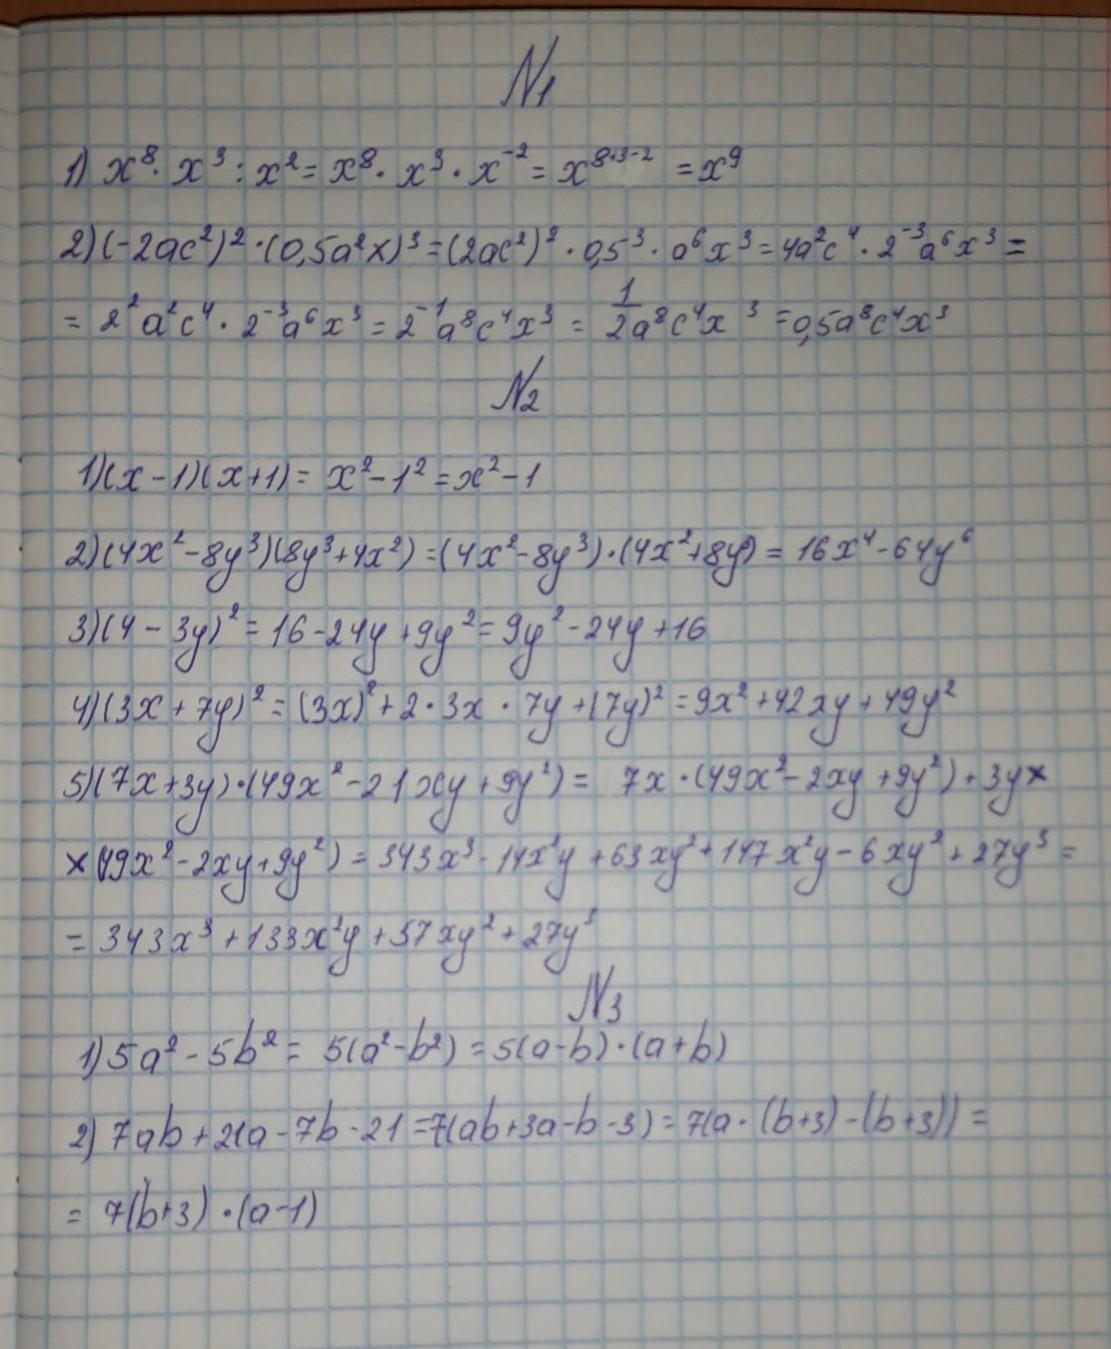 №1
1) x⁸ · x³ : x² = x⁸ · x³ · x⁻² = x⁸⁺³⁻² = x⁹
2) (-2ac²)² · (0,5a²x)³ = (2ac²)² · 0,5³ · a⁶x³ = 4a²c⁴ · 2⁻³a⁶x³ =
= 2²a²c⁴ · 2⁻³a⁶x³ = 2⁻¹a⁸c⁴x³ = 1/2a⁸c⁴x³ = 0,5a⁸c⁴x³
№2
1) (x - 1)(x + 1) = x² - 1² = x² - 1
2) (4x² - 8y³)(8y³ + 4x²) = (4x² - 8y³) · (4x² + 8y³) = 16x⁴ - 64y⁶
3) (4 - 3y)² = 16 - 24y + 9y² = 9y² - 24y + 16
4) (3x + 7y)² = (3x)² + 2 · 3x · 7y + (7y)² = 9x² + 42xy + 49y²
5) (7x + 3y) · (49x² - 21xy + 9y²) = 7x · (49x² - 2xy + 9y²) + 3y ×
× (49x² - 2xy + 9y²) = 343x³ - 14x²y + 63xy² + 147x²y - 6xy² + 27y³ =
= 343x³ + 133x²y + 57xy² + 27y³
№3
1) 5a² - 5b² = 5(a² - b²) = 5(a - b) · (a + b)
2) 7ab + 21a - 7b - 21 = 7(ab + 3a - b - 3) = 7(a · (b + 3) - (b + 3)) =
= 7(b + 3) · (a - 1)